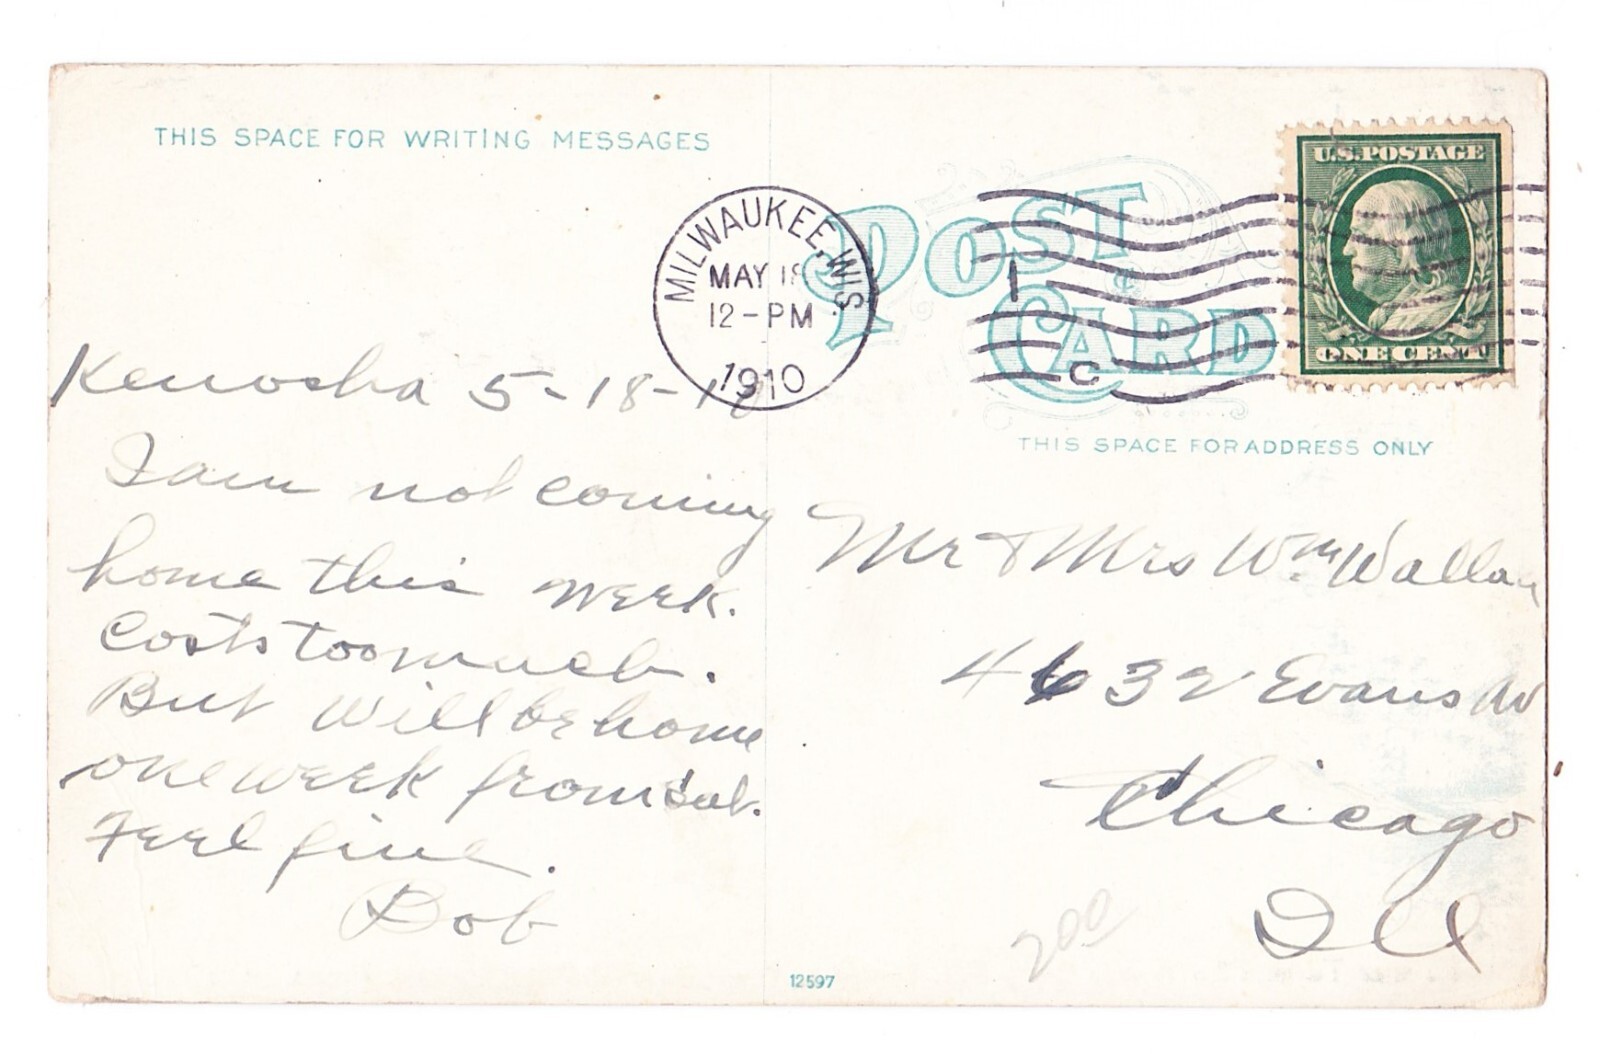 THIS SPACE FOR WRITING MESSAGES
MILWAUKEE, WIS.
MAY 18
12-PM
1910
POST
CARD
1
C
U.S. POSTAGE
ONE CENT
THIS SPACE FOR ADDRESS ONLY
Kenosha 5-18-10
I am not coming
home this week.
Costs too much.
But will be home
one week from Sat.
Feel fine.
Bob
Mr & Mrs Wm
4632 Evans Av
Chicago
Ill
200
12597